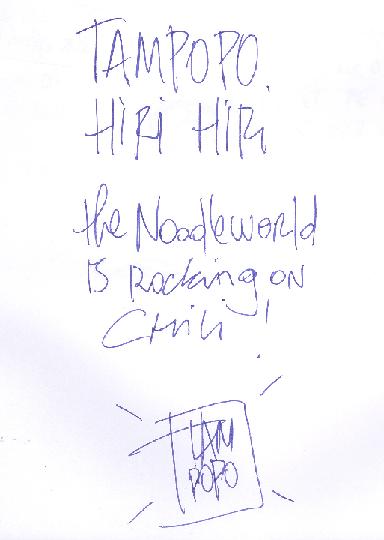 TAMPOPO.
HiRi HiRi
the Noodleworld
is Rocking on
CHili !
TAM
POPO